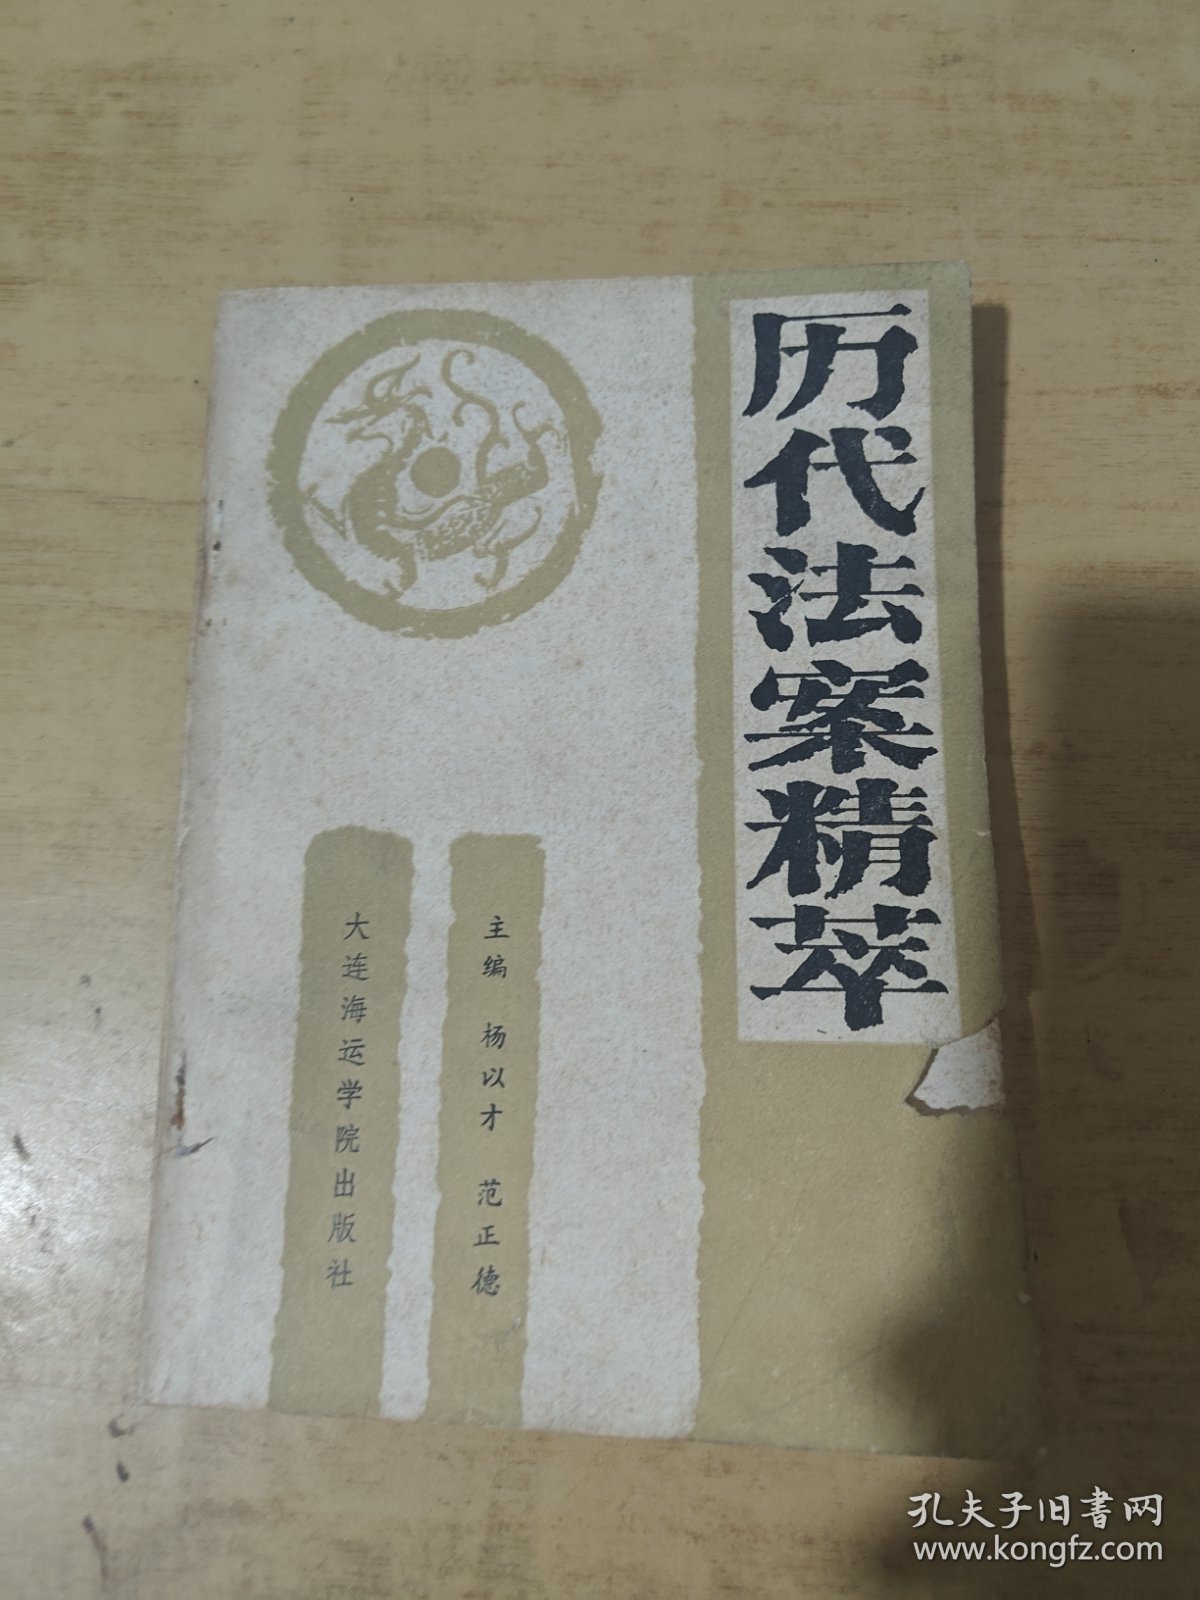 历代法案精萃
主编 杨以才 范正德
大连海运学院出版社
孔夫子旧書网
www.kongfz.com